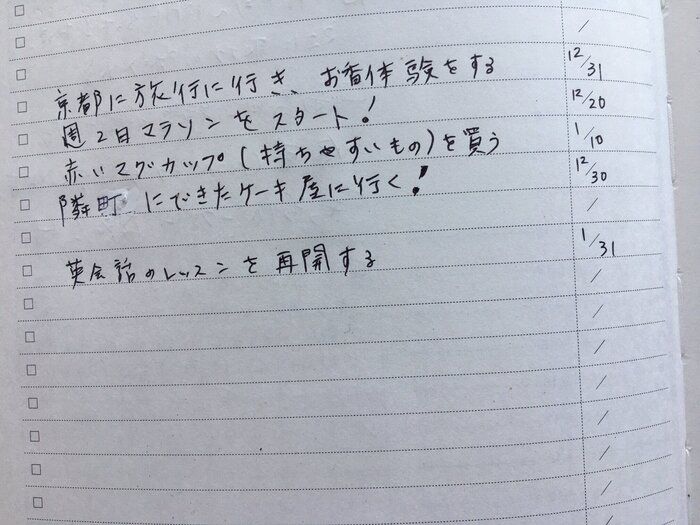 京都に旅行に行き、お香体験をする 12/31
週2日マラソンをスタート! 12/20
赤いマグカップ(持ちやすいもの)を買う 1/10
隣町にできたケーキ屋に行く! 12/30
英会話のレッスンを再開する 1/31